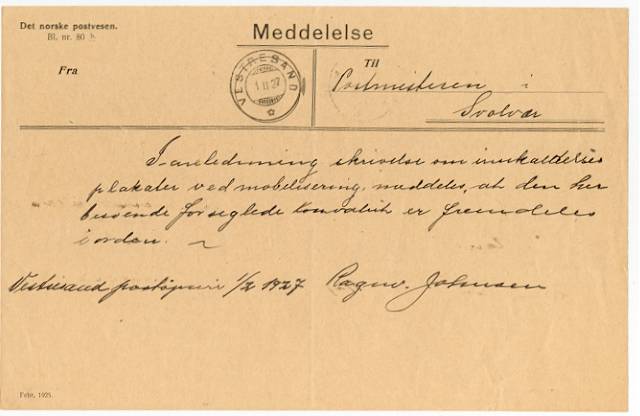 Det norske postvesen.
Bl. nr. 80 b
Meddelelse
Fra
VESTRESAND
1 II 27
Til
Postmesteren i
Svolvær
I anledning skrivelse om innkaldelses
plakater ved mobilisering, meddeles, at den her
beroende forseglede konvolutt er fremdeles
i orden.
Vestresand postaapneri 1/2 1927 Ragnv. Johnsen
Febr. 1925.